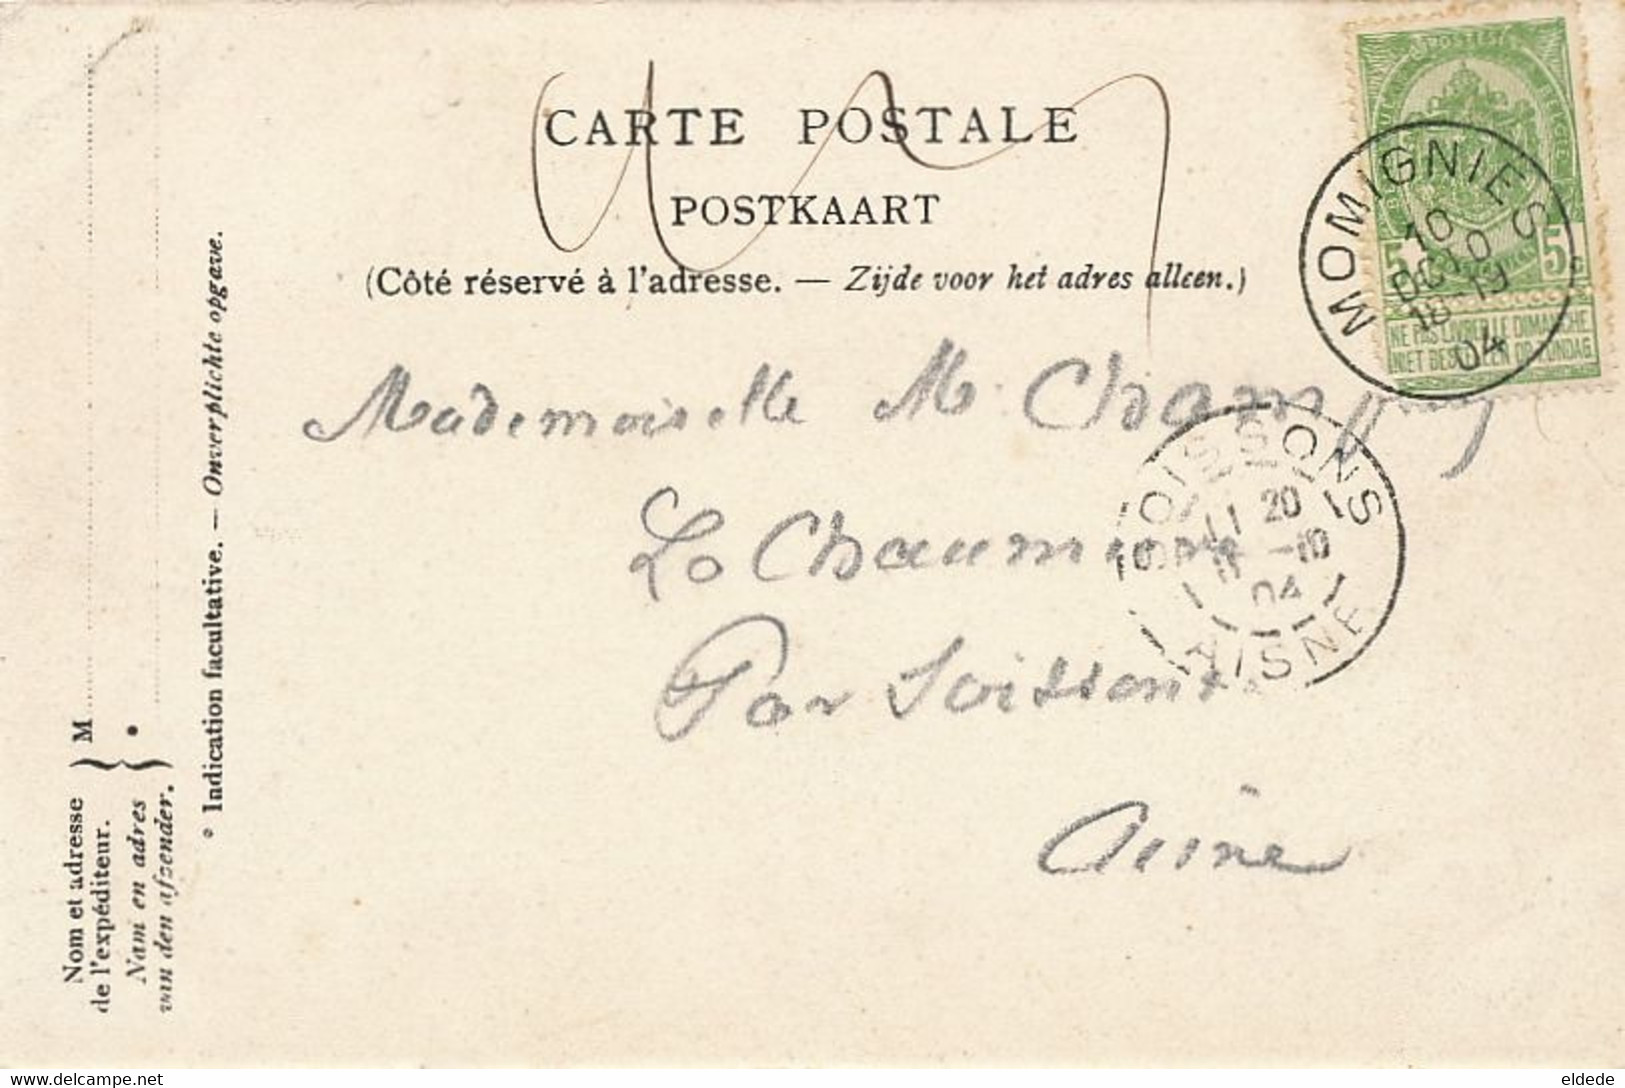 CARTE POSTALE
POSTKAART
(Côté réservé à l'adresse. — Zijde voor het adres alleen.)
Mademoiselle M. Champ
La Chaumière
Par Soissons
Aisne
POSTES
BELGIQUE BELGIE
5 5c
NE PAS LIVRER LE DIMANCHE
NIET BESTELLEN OP ZONDAG
MOMIGNIES
10
OCTO
18-19
04
SOISSONS
11 20
-10
04
AISNE
Nom et adresse
de l'expéditeur.
Nam en adres
van den afzender.
M
* Indication facultative. — Onverplichte opgave.
eldede